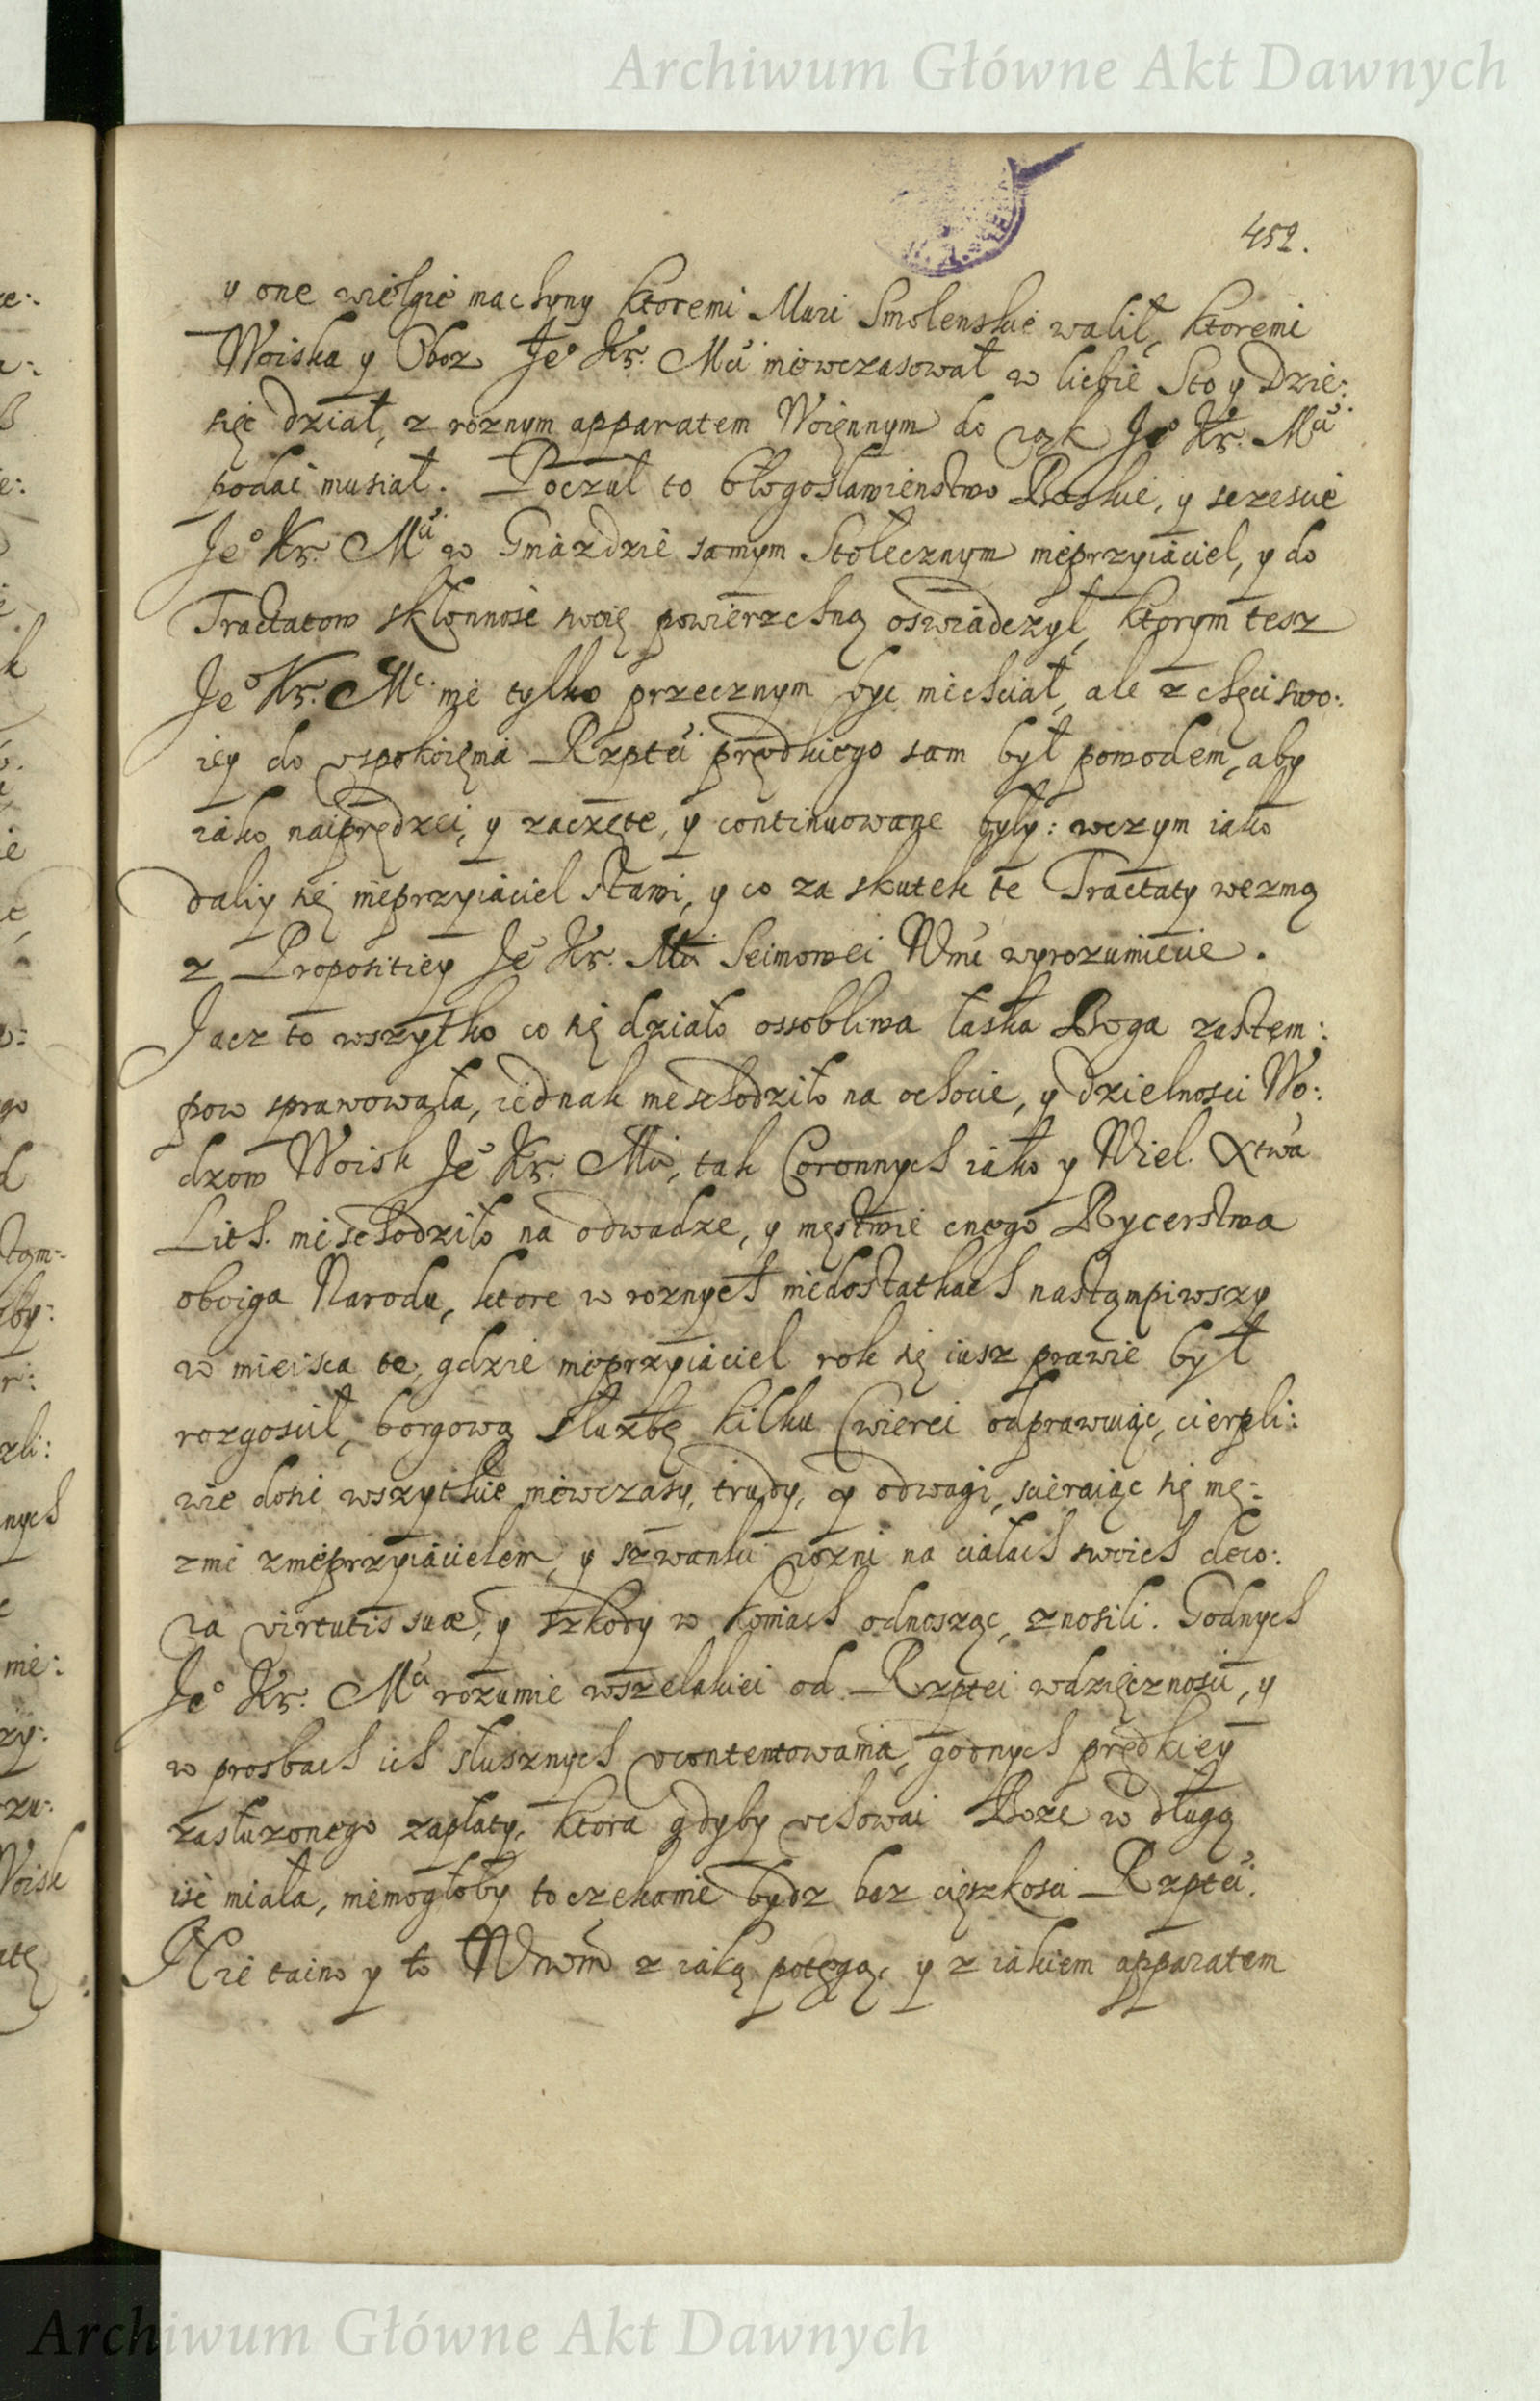 Archiwum Główne Akt Dawnych
452.
y one wielgie machyny ktoremi Muri Smolenskie walił, ktoremi
Woiska y Oboz Je° Kr. Mci niewczasował w liczbie Sto y Dzie:
sięc dział, z roznym apparatem Woięnnym do rąk Je° Kr. Mci
podać musiał. Poczuł to błogosławienstwo Boskie, y sczescie
Je° Kr. Mci w Gniazdzie samym Stołecznym nieprzyiaciel, y do
Tractatow skłonnosc swoię powierzchną oswiadczył, ktorym tesz
Je° Kr. Mc. nie tylko przecznym byc niechciał, ale z chęci swo:
iey do uspokoięnia Rzptei prędkiego sam był powodem, aby
iako naiprędzei, y zaczęte, y continuowane były: wczym iako
daliy się nieprzyiaciel stawi, y co za skutek te Tractaty wezmą
z Propositiey Je° Kr. Mci Seimowei Wmć wyrozumiecie.
Jacz to wszytko co się działo ossobliwa łaska Boga zastem:
pow sprawowała, iednak nieschodziło na ochocie, y dzielnosci Wo:
dzow Woisk Je° Kr. Mci, tak Coronnych iako y Wiel. Xtwa
Lith. nieschodziło na odwadze, y męstwie cnego Rycerstwa
oboiga Narodu, ktore w roznych niedostatkach nastąmpiwszy
w mieisca te, gdzie nieprzyiaciel rok się iusz prawie był
rozgoscił, borgową służbę kilku Cwierci odprawuiąc, cierpli:
wie dosic wszytkie niewczasy, trudy, y odwagi, scieraiąc się mę:
znie znieprzyiacielem, y szwanki rozni na ciałach swoich deco:
ra virtutis suæ, y szkody w koniach odnosząc, znosili. Godnych
Je° Kr. Mci rozumie wszelakiei od Rzptei wdzięcznosci, y
w prosbach ich słusznych ucontentowania, godnych prędkiey
zasłuzonego zapłaty, ktora gdyby uchowai Boze w długą
isc miała, niemogłoby to czekanie bydz bez cięszkosci Rzptei.
Nie taino y to Wmciom z iaką potęgą, y z iakiem apparatem
Archiwum Główne Akt Dawnych